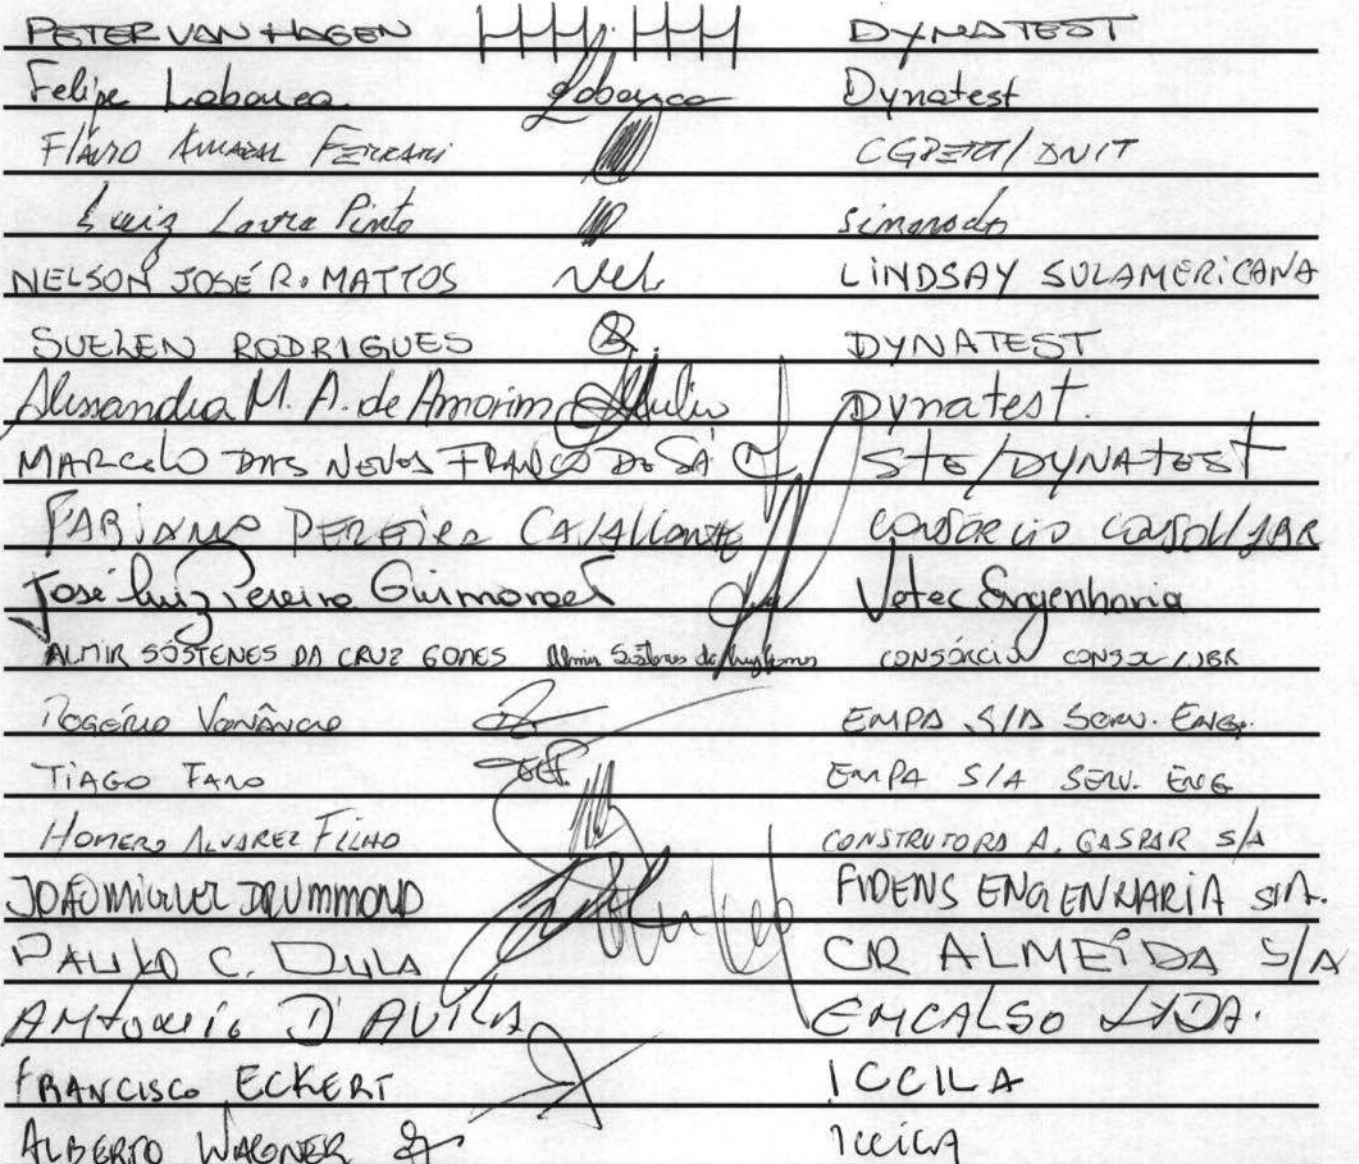 PETER VAN HAGEN DYNATEST
Felipe Labanca Labanca Dynatest
Flávio Amaral Ferrari CGPERT/DNIT
Luiz Lavra Pinto
NELSON JOSÉ R. MATTOS Nel LINDSAY SULAMERICANA
SUELEN RODRIGUES DYNATEST
Alessandra M. A. de Amorim Dynatest.
MARCELO DAS NEVES FRANCO DE SÁ STE/DYNATEST
FABIANO PEREIRA CAVALCANTE CONSÓRCIO CONSOL/JBR
José Luiz Pereira Guimaraes Vetec Engenharia
ALMIR SÓSTENES DA CRUZ GOMES Almir Sóstenes da Cruz Gomes CONSÓRCIO CONSOL/JBR
ROGÉRIO VENÂNCIO EMPA S/A SERV. ENG.
TIAGO FARO EMPA S/A SERV. ENG
HOMERO ALVAREZ FILHO CONSTRUTORA A. GASPAR S/A
JOÃO MIGUEL DRUMMOND FIDENS ENGENHARIA S/A.
PAULO C. DULA CR ALMEIDA S/A
ANTONIO D'AVILA EMCALSO LTDA.
FRANCISCO ECKERT ICCILA
ALBERTO WAGNER ICCILA